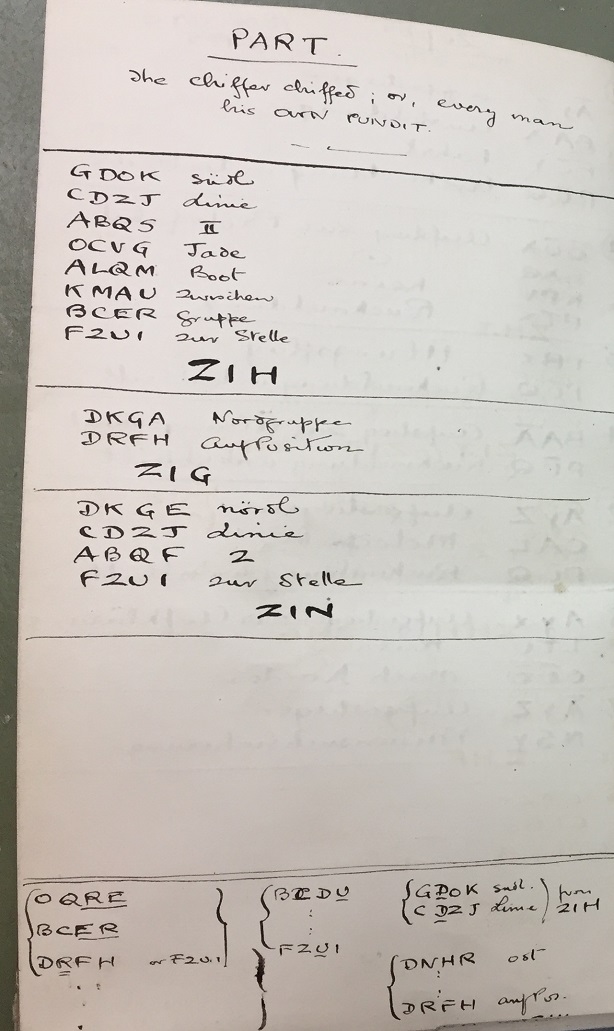 PART.
The chiffer chiffed; or, every man
his own PUNDIT.
GDOK südl
CDZJ Linie
ABQS II
OCVG Jade
ALQM Boot
KMAU zwischen
BCER Gruppe
FZUI zur Stelle
ZIH
DKGA Nordgruppe
DRFH auf Position
ZIG
DKGE nördl
CDZJ Linie
ABQF 2
FZUI zur Stelle
ZIN
OQRE
BCER
DRFH or FZUI
BCDU
FZUI
GDOK südl.
CDZJ Linie
from
ZIH
DNHR ost
DRFH auf Pos.